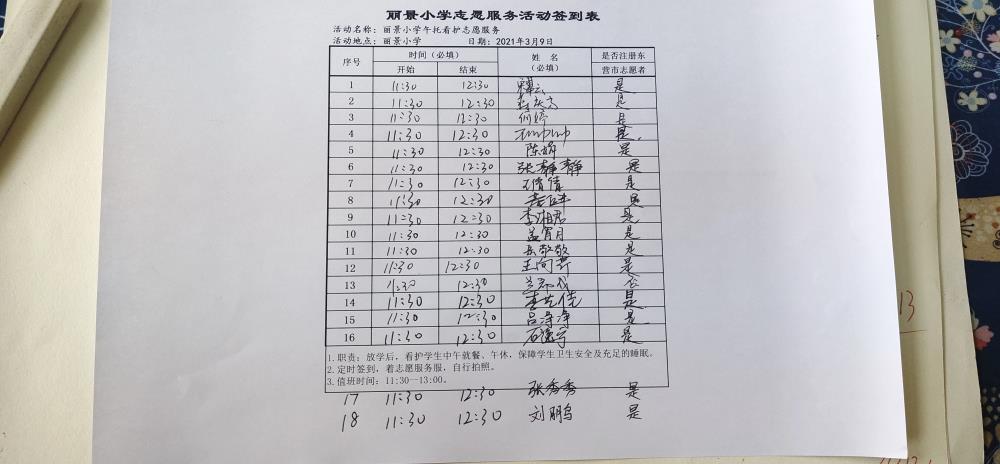 丽景小学志愿服务活动签到表
活动名称：丽景小学午托看护志愿服务
活动地点：丽景小学 日期：2021年3月9日
序号 时间（必填） 姓 名（必填） 是否注册东营市志愿者
开始 结束
1 11:30 12:30 是
2 11:30 12:30 是
3 11:30 12:30 何婷 是
4 11:30 12:30 是
5 11:30 12:30 陈娟 是
6 11:30 12:30 张静静 是
7 11:30 12:30 王倩倩 是
8 11:30 12:30 是
9 11:30 12:30 李湘君 是
10 11:30 12:30 孟宵月 是
11 11:30 12:30 岳敬敬 是
12 11:30 12:30 王向芹 是
13 11:30 12:30 否
14 11:30 12:30 是
15 11:30 12:30 吕净净 是
16 11:30 12:30 是
1.职责：放学后，看护学生中午就餐、午休，保障学生卫生安全及充足的睡眠。
2.定时签到，着志愿服务服，自行拍照。
3.值班时间：11:30—13:00。
17 11:30 12:30 张秀秀 是
18 11:30 12:30 刘鹏 是
13